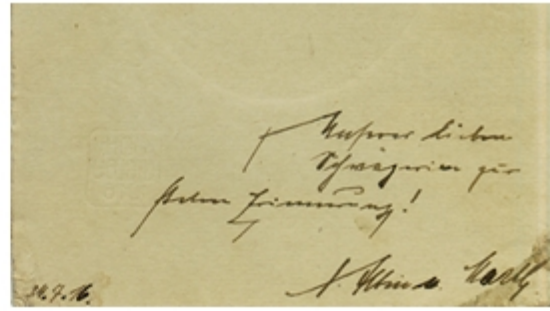 Unserer lieben
Schwägerin zur
steten Erinnerung!
v. Albin u.